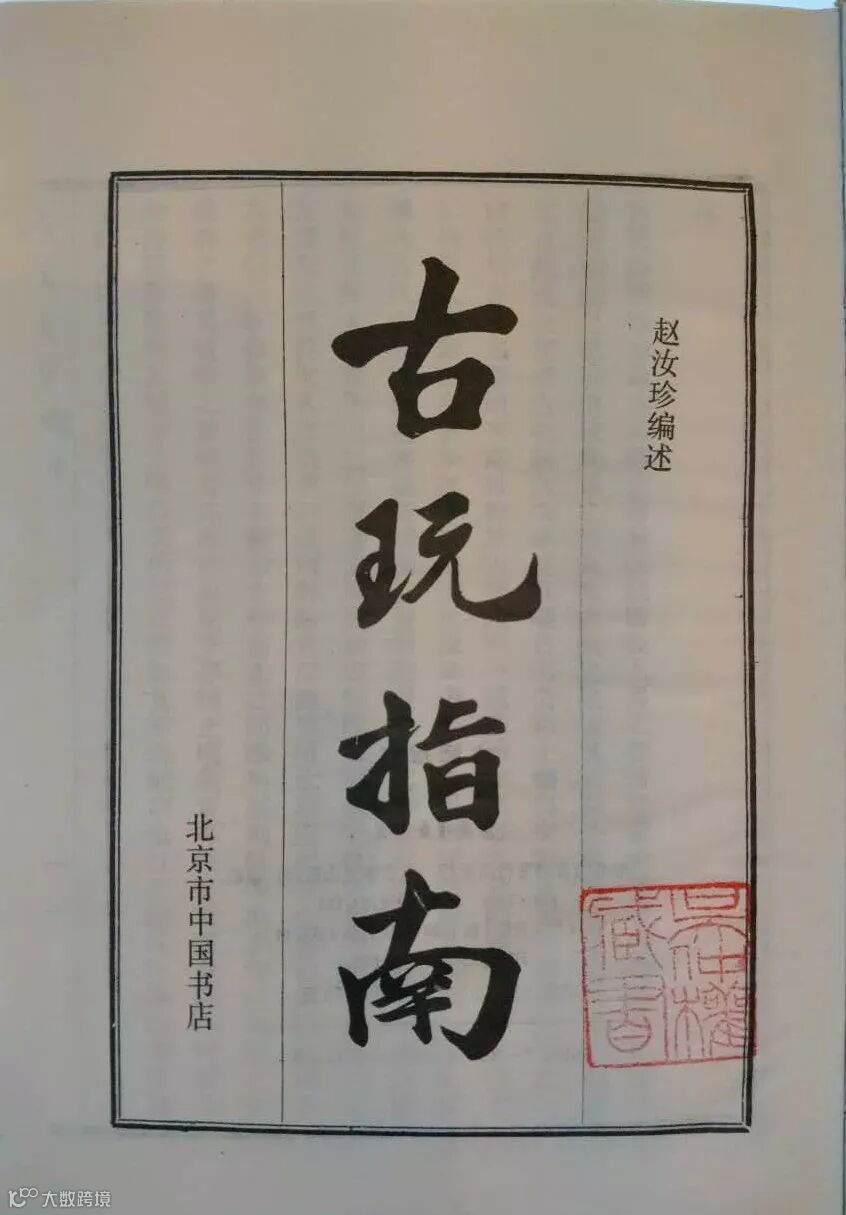 赵汝珍编述
古玩指南
北京市中国书店
吴仲权
藏书
大数跨境